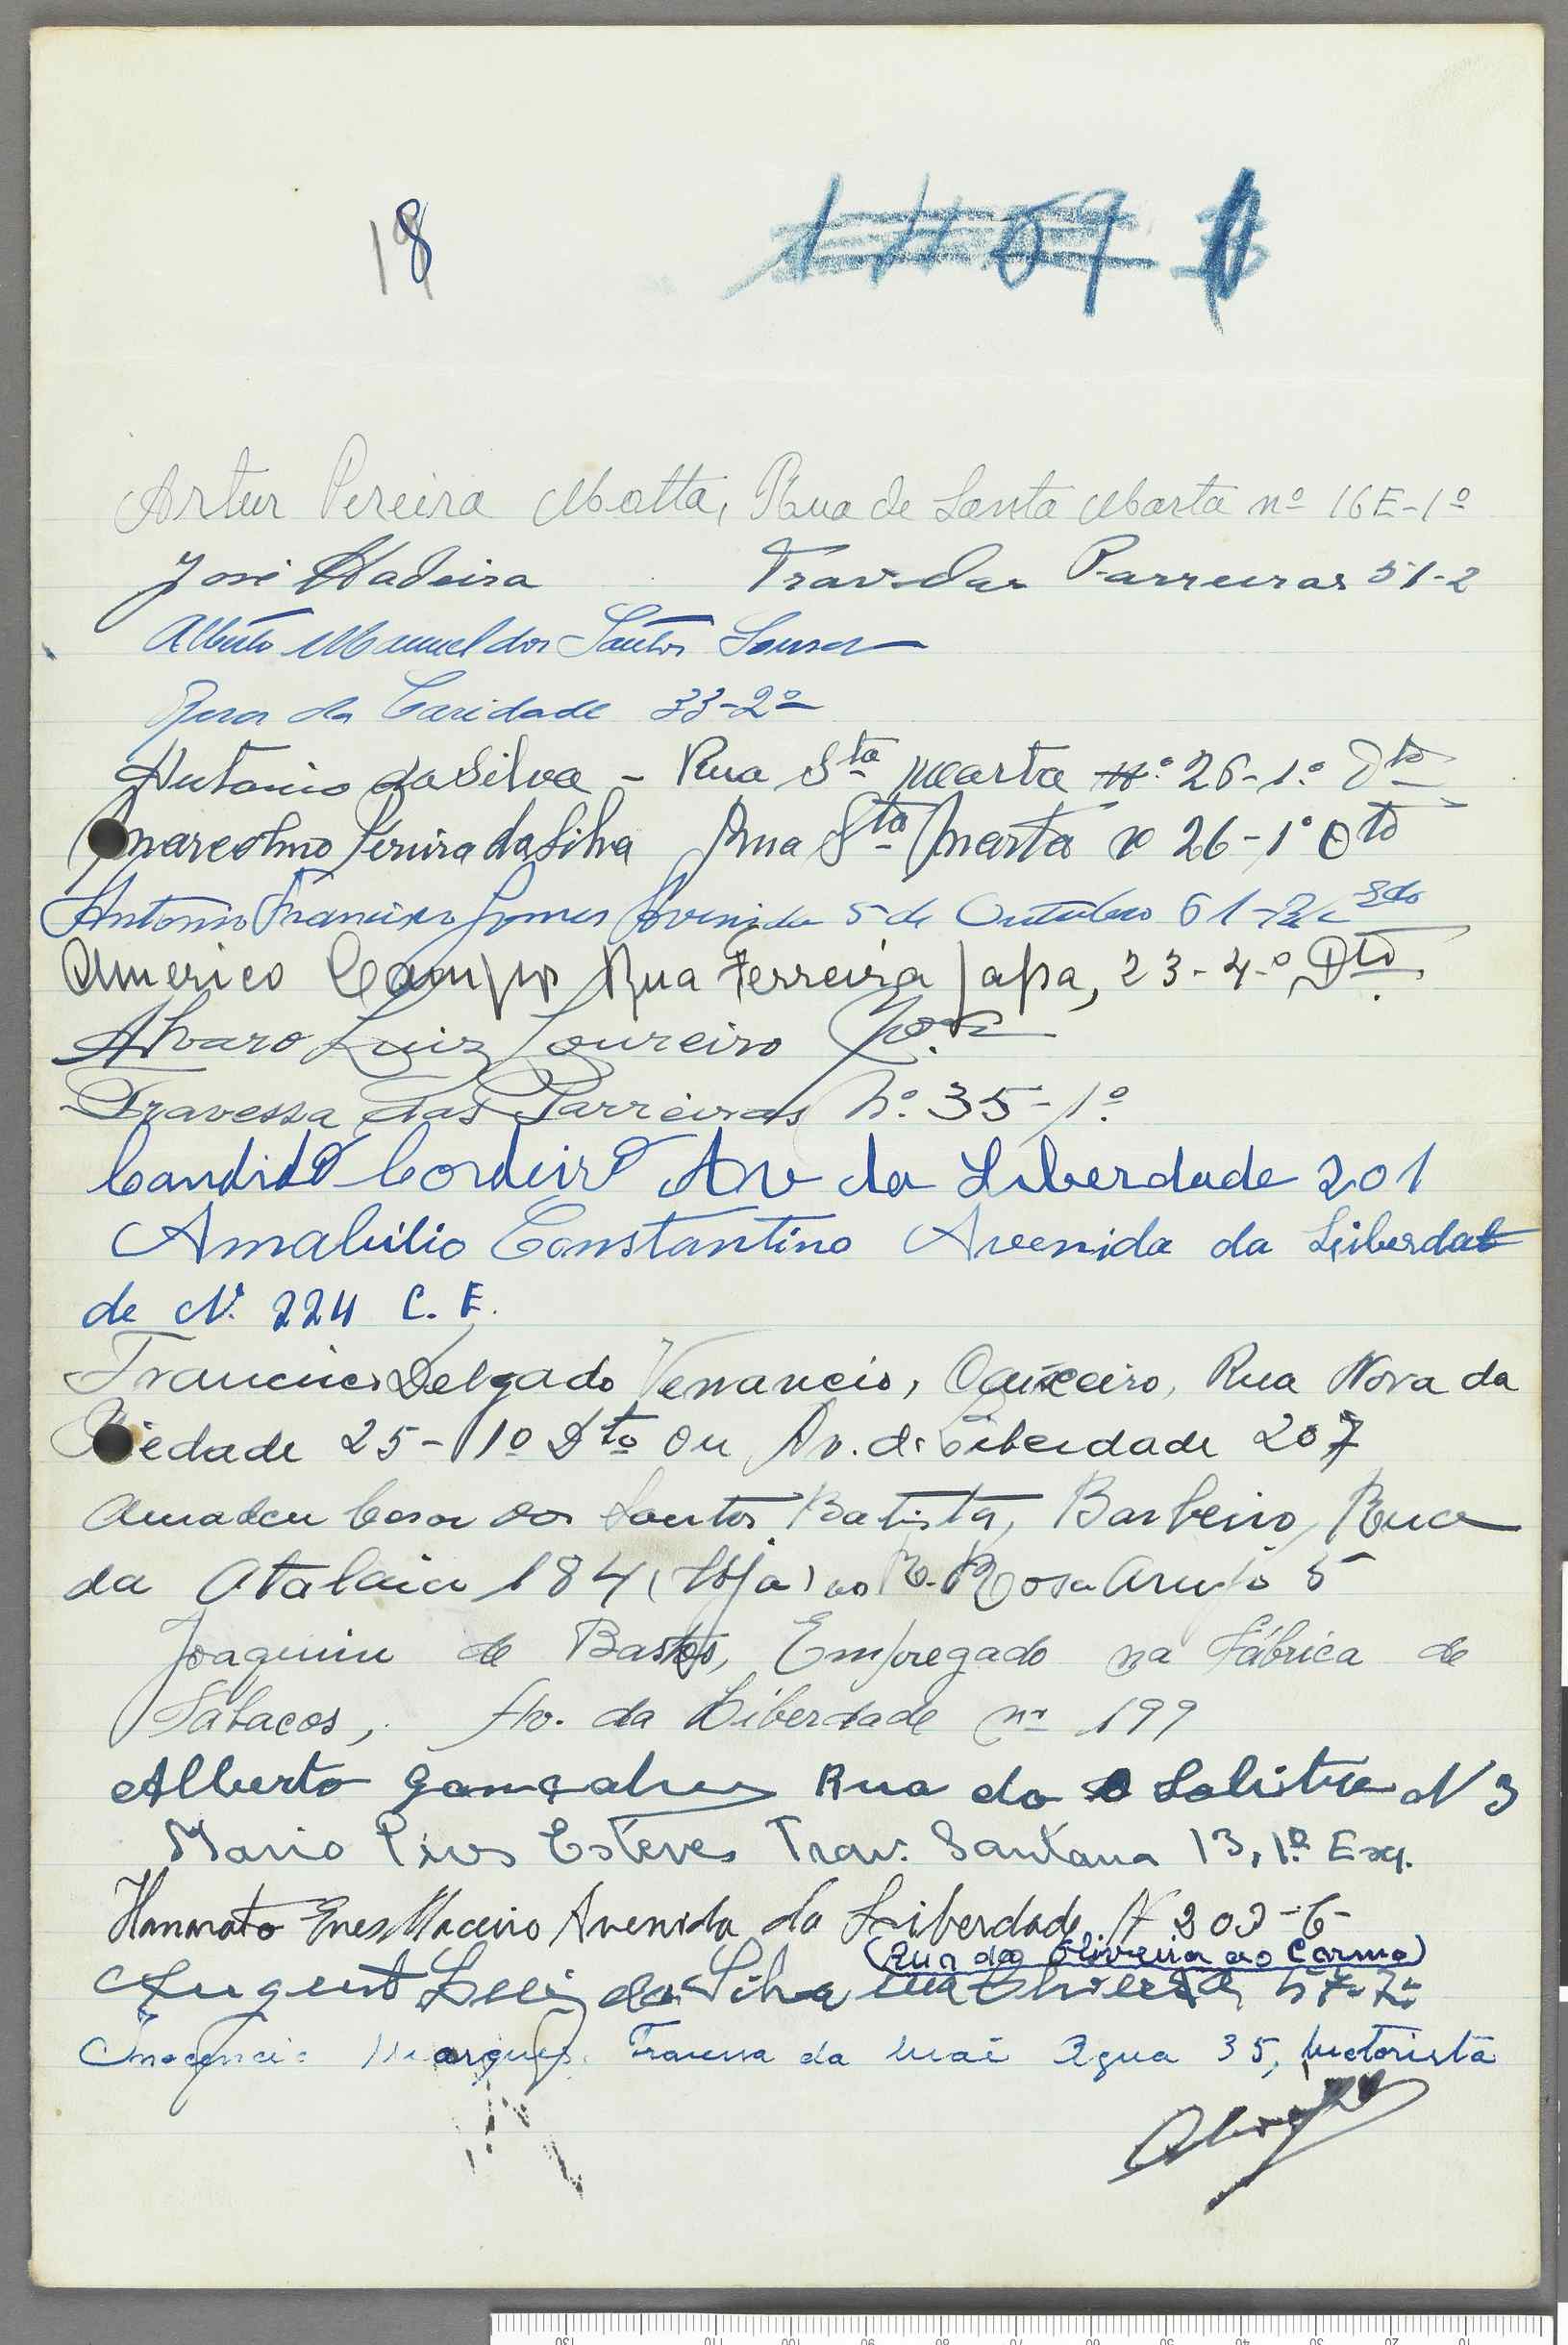 18
Artur Pereira Motta, Rua de Santa Marta nº 16E-1º
José Madeira Trav. das Parreiras 51-2
Alberto Manuel dos Santos Sousa
Rua da Caridade 33-2º
Antonio da Silva - Rua Sta Marta nº 26-1º Dto
Pereira da Silva Rua Sta Marta nº 26-1º Dto
Antonio Francisco Gomes Avenida 5 de Outubro 61-
Americo Campos Rua Ferreira Lapa, 23-4-º Dto.
Alvaro Luiz Loureiro
Travessa das Parreiras Nº 35-1º
Candido Cordeiro Av da Liberdade 201
Amabilio Constantino Avenida da Liberda
de Nº 224 C. E.
Francisco Delgado Venancio, Rua Nova da
Piedade 25-1º Dto ou Av. da Liberdade 207
Amadeu Cesar dos Santos Batista, Barbeiro, Rua
da Atalaia 184 (loja) R. Rosa Araujo 5
Joaquim de Bastos, Empregado na Fábrica de
Tabacos, Av. da Liberdade nº 199
Alberto Gonçalves Rua do Salitre N 3
Mario Pires Esteves Trav. Santana 13, 1º Esq.
Avenida da Liberdade N 203-C-
(Rua da Oliveira ao Carmo)
da Silva
Inocencio Marques. Travessa da Mãe Agua 35, Motorista